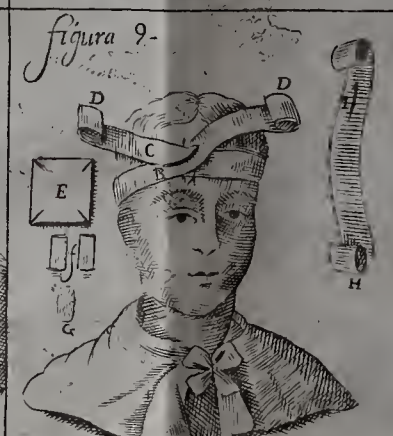 figura 9-
D D
H
C
B A
E
f
G
H